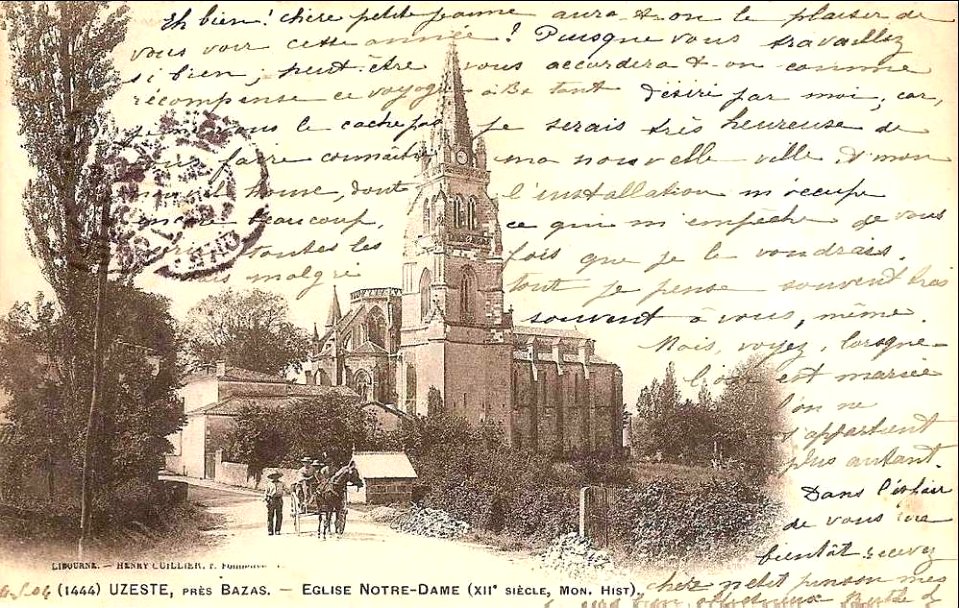 Eh bien! chère petite Jeanne aura-t-on le plaisir de
vous voir cette année! Puisque vous travaillez
si bien, peut-être vous accordera-t-on comme
récompense ce voyage tant désiré par moi, car,
je ne vous le cache pas, je serais très heureuse de
faire connaître ma nouvelle ville, mon
home, dont l'installation m'occupe
encore beaucoup, ce qui m'empêche de vous
toutes les fois que je le voudrais.
malgré tout je pense souvent très
souvent à vous, même.
Mais, voyez, lorsque
l'on est mariée
l'on ne
s'appartient
plus autant.
Dans l'espoir
de vous lire
bientôt, recevez
chère petit pinson mes
affectueux Berthe
LIBOURNE. — HENRY GUILLIER,
(1444) UZESTE, PRÈS BAZAS. — EGLISE NOTRE-DAME (XIIe SIÈCLE, MON. HIST).